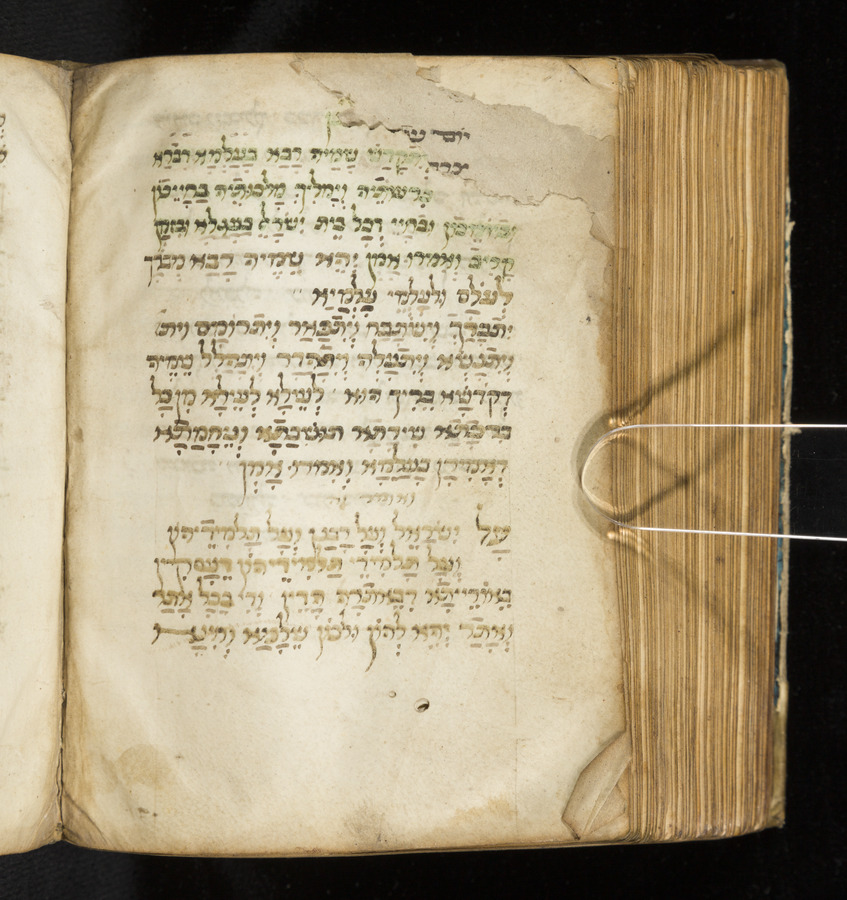 יתקדש שמיה רבא בעלמא דברא
כרעותיה וימליך מלכותיה בחייכון
וביומיכון ובחיי דכל בית ישראל בעגלא ובזמן
קריב ואמרו אמן יהא שמיה רבא מברך
לעלם ולעלמי עלמיא
יתברך וישתבח ויתפאר ויתרומם וית
ויתנשא ויתעלה ויתהדר ויתהלל שמיה
דקדשא בריך הוא לעילא לעילא מן כל
ברכתא שירתא תושבחתא ונחמתא
דאמירן בעלמא ואמרו אמן
על ישראל ועל רבנן ועל תלמידיהון
ועל תלמידי תלמידיהון דעסקין
באורייתא דבאתרא הדין ודי בכל אתר
ואתר יהא להון ולכון שלמא וחינא